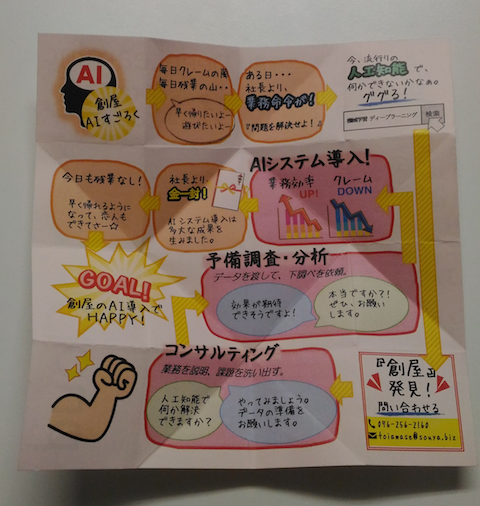 AI
創屋
AIすごろく
毎日クレームの嵐
毎日残業の山・・
早く帰りたいよー
遊びたいよー
ある日・・・
社長より、
業務命令が!
『問題を解決せよ!』
今、流行りの
人工知能で、
何かできないかなぁ。
ググる!
機械学習 ディープラーニング
検索
『創屋』
発見!
問い合わせる
076-256-2160
toiawase@souya.biz
コンサルティング
業務を説明、課題を洗い出す。
人工知能で
何か解決
できますか?
やってみましょう。
データの準備を
お願いします。
予備調査・分析
データを渡して、下調べを依頼。
効果が期待
できそうですよ!
本当ですか?!
ぜひ、お願い
します。
AIシステム導入!
業務効率
UP!
クレーム
DOWN
社長より
金一封!
AIシステム導入は
多大な成果を
生みました。
今日も残業なし!
早く帰れるように
なって、恋人も
できてさー☆
GOAL!
創屋のAI導入で
HAPPY!